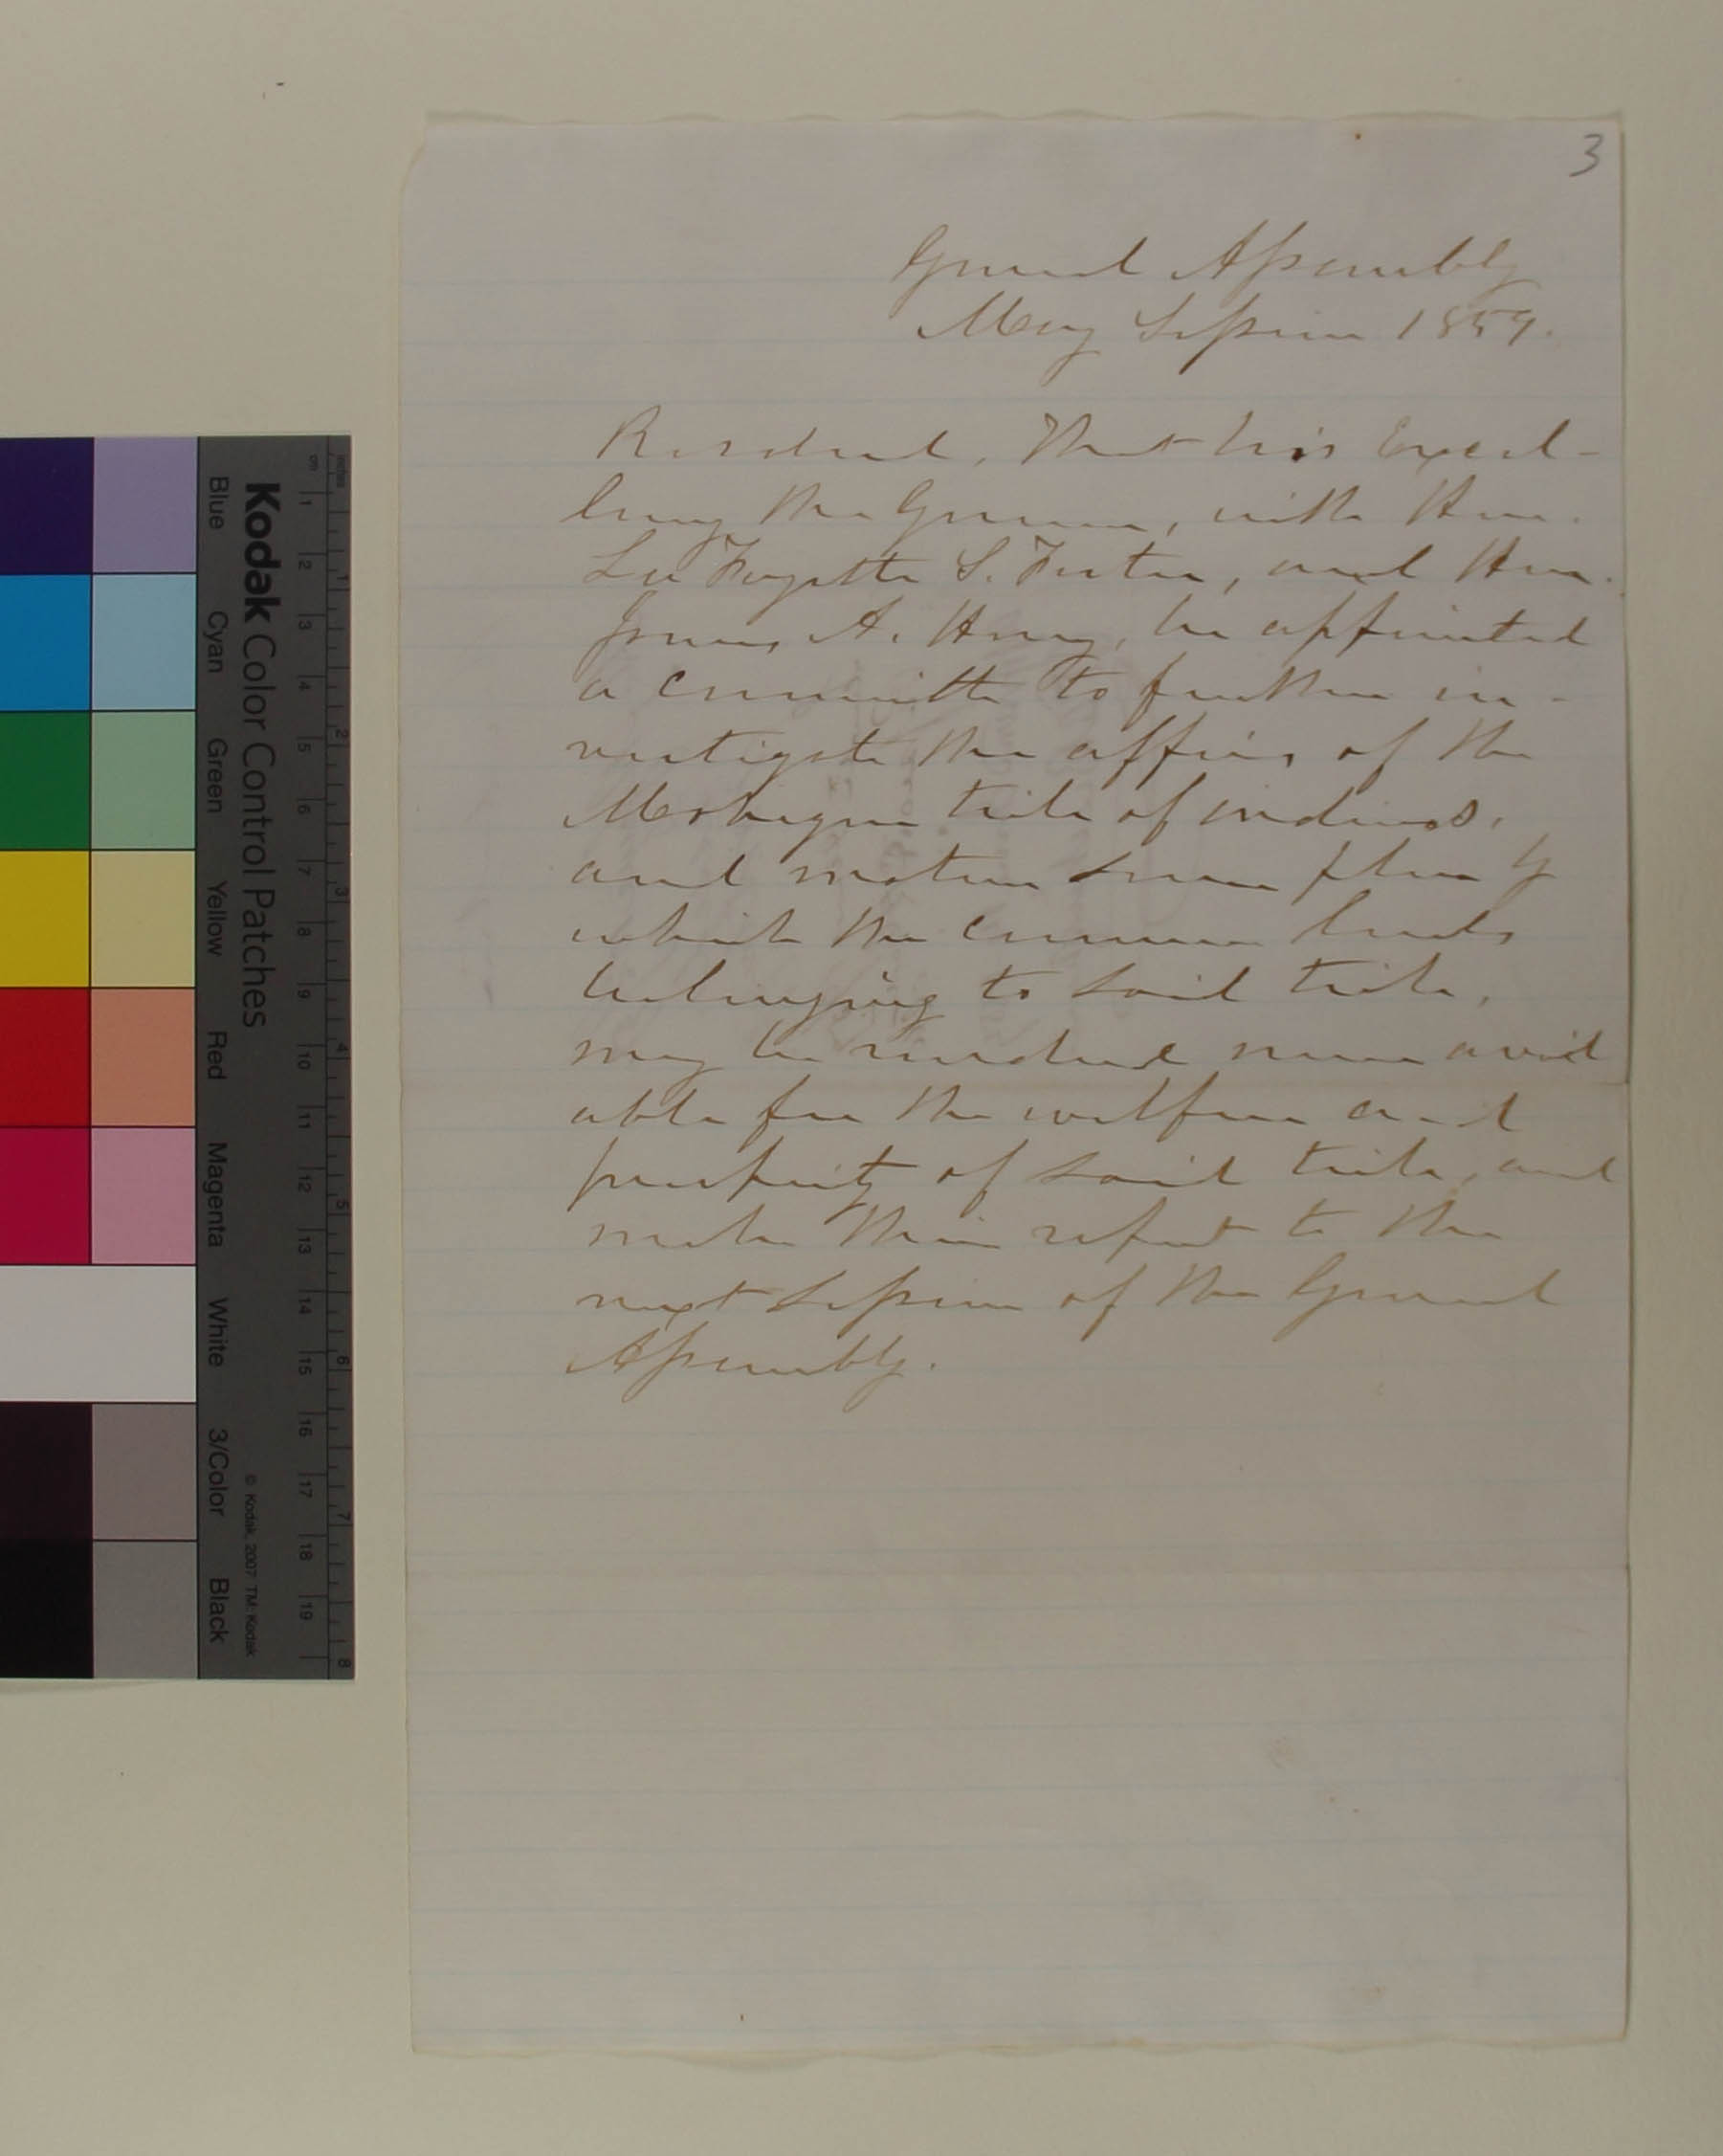 3
General Assembly
May Session 1859.
Resolved, That his Excel-
lency the Governor, with Hon.
La Fayette S. Foster, and Hon.
James A. Hovey, be appointed
a committe to further in-
vestigate the affairs of the
Mohegan tribe of indians,
and mature some plan by
which the common lands
belonging to said tribe,
may be rendered more avail
able for the welfare and
prosperity of said tribe, and
make their report to the
next Session of the General
Assembly.
Kodak Color Control Patches
© Kodak, 2007 TM: Kodak
Blue Cyan Green Yellow Red Magenta White 3/Color Black
cm 1 2 3 4 5 6 7 8 9 10 11 12 13 14 15 16 17 18 19
inches 1 2 3 4 5 6 7 8